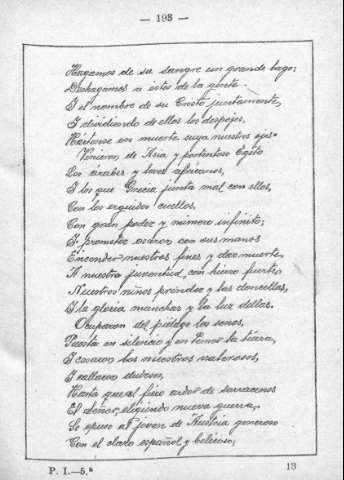 — 193 —
Hagamos de su sangre un grande lago;
Deshagamos a estos de la gente
I el nombre de su Cristo juntamente,
I dividiendo de ellos los despojos,
Hártense en muerte suya nuestros ojos.
Vinieron de Asia y portentoso Egito
Los árabes y leves africanos,
I los que Grecia junta mal con ellos,
Con los erguidos cuellos,
Con gran poder y número infinito;
I prometer osaron con sus manos
Encender nuestros fines y dar muerte
A nuestra juventud con hierro fuerte,
Nuestros niños prender y las doncellas,
I la gloria manchar y la luz dellas.
Ocuparon del piélago los senos,
Puesta en silencio y en temor la tierra,
I cesaron los nuestros valerosos,
I callaron dudosos,
Hasta que al fiero ardor de sarracenos
El Señor, eligiendo nueva guerra,
Se opuso el joven de Austria generoso
Con el claro español y belicoso;
P. I.—5.ª
13